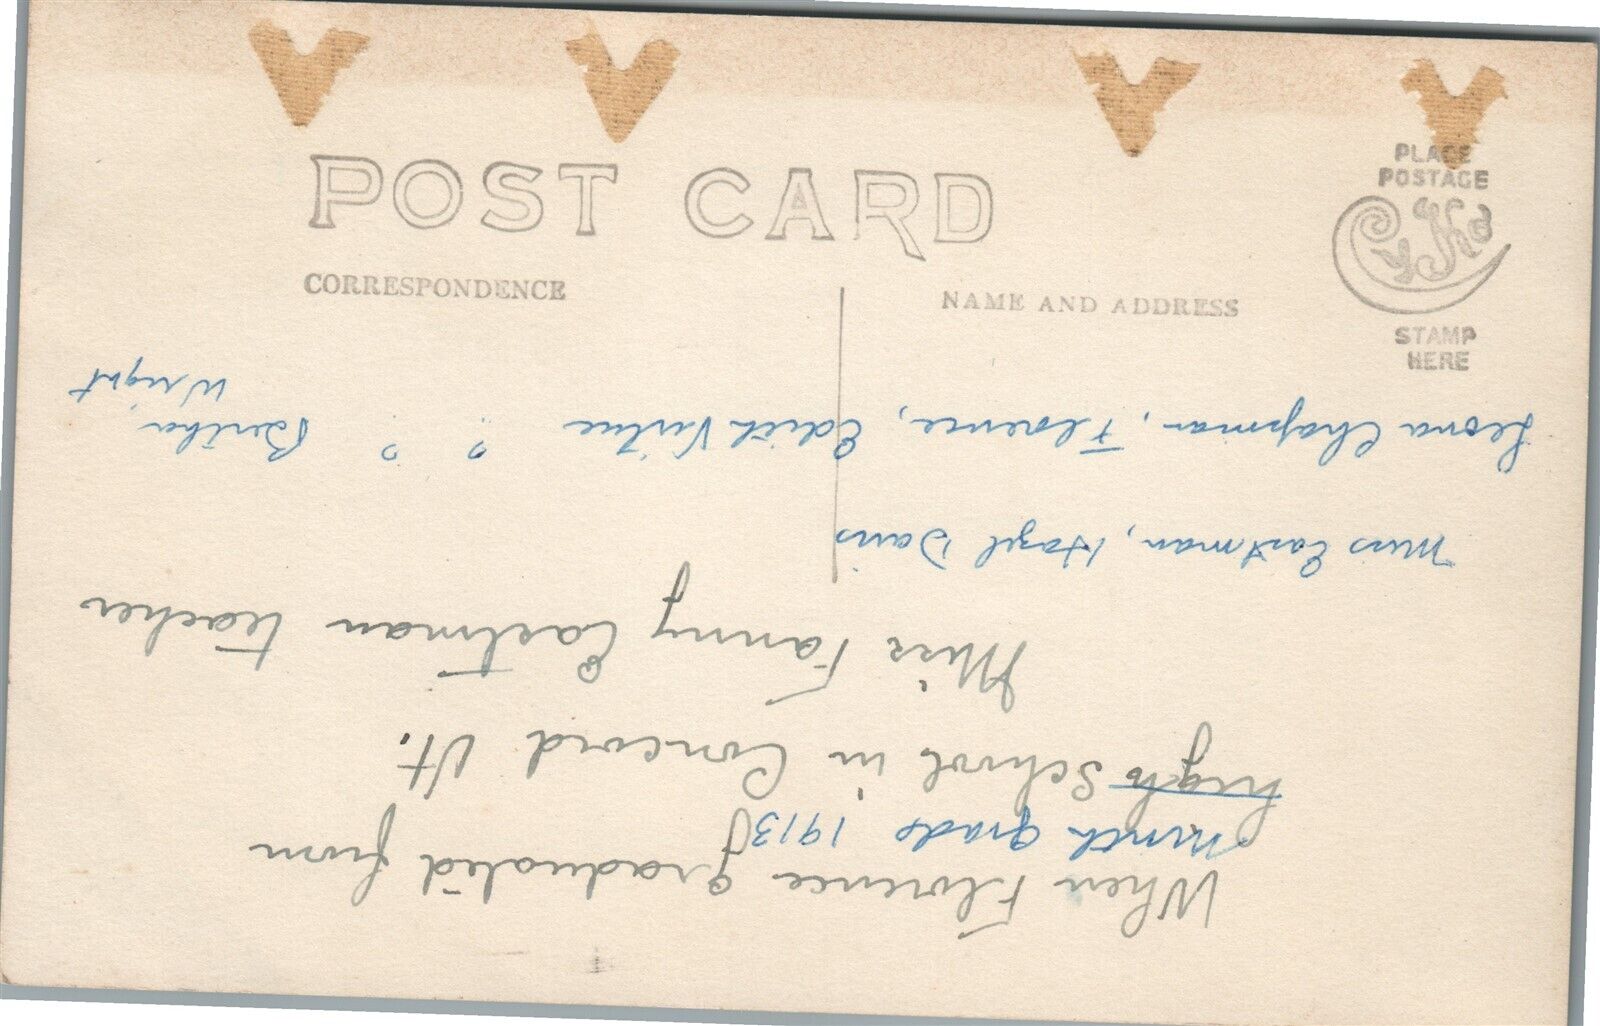 POST CARD
CORRESPONDENCE
NAME AND ADDRESS
PLACE
POSTAGE
STAMP
HERE
When Florence graduated from
ninth grade 1913
high School in Concord Vt.
Miss Fanny Eastman teacher
Miss Eastman, Hazel Davis
Leona Chapman, Florence, Edith Virtue ? ? Bertha,
Wright